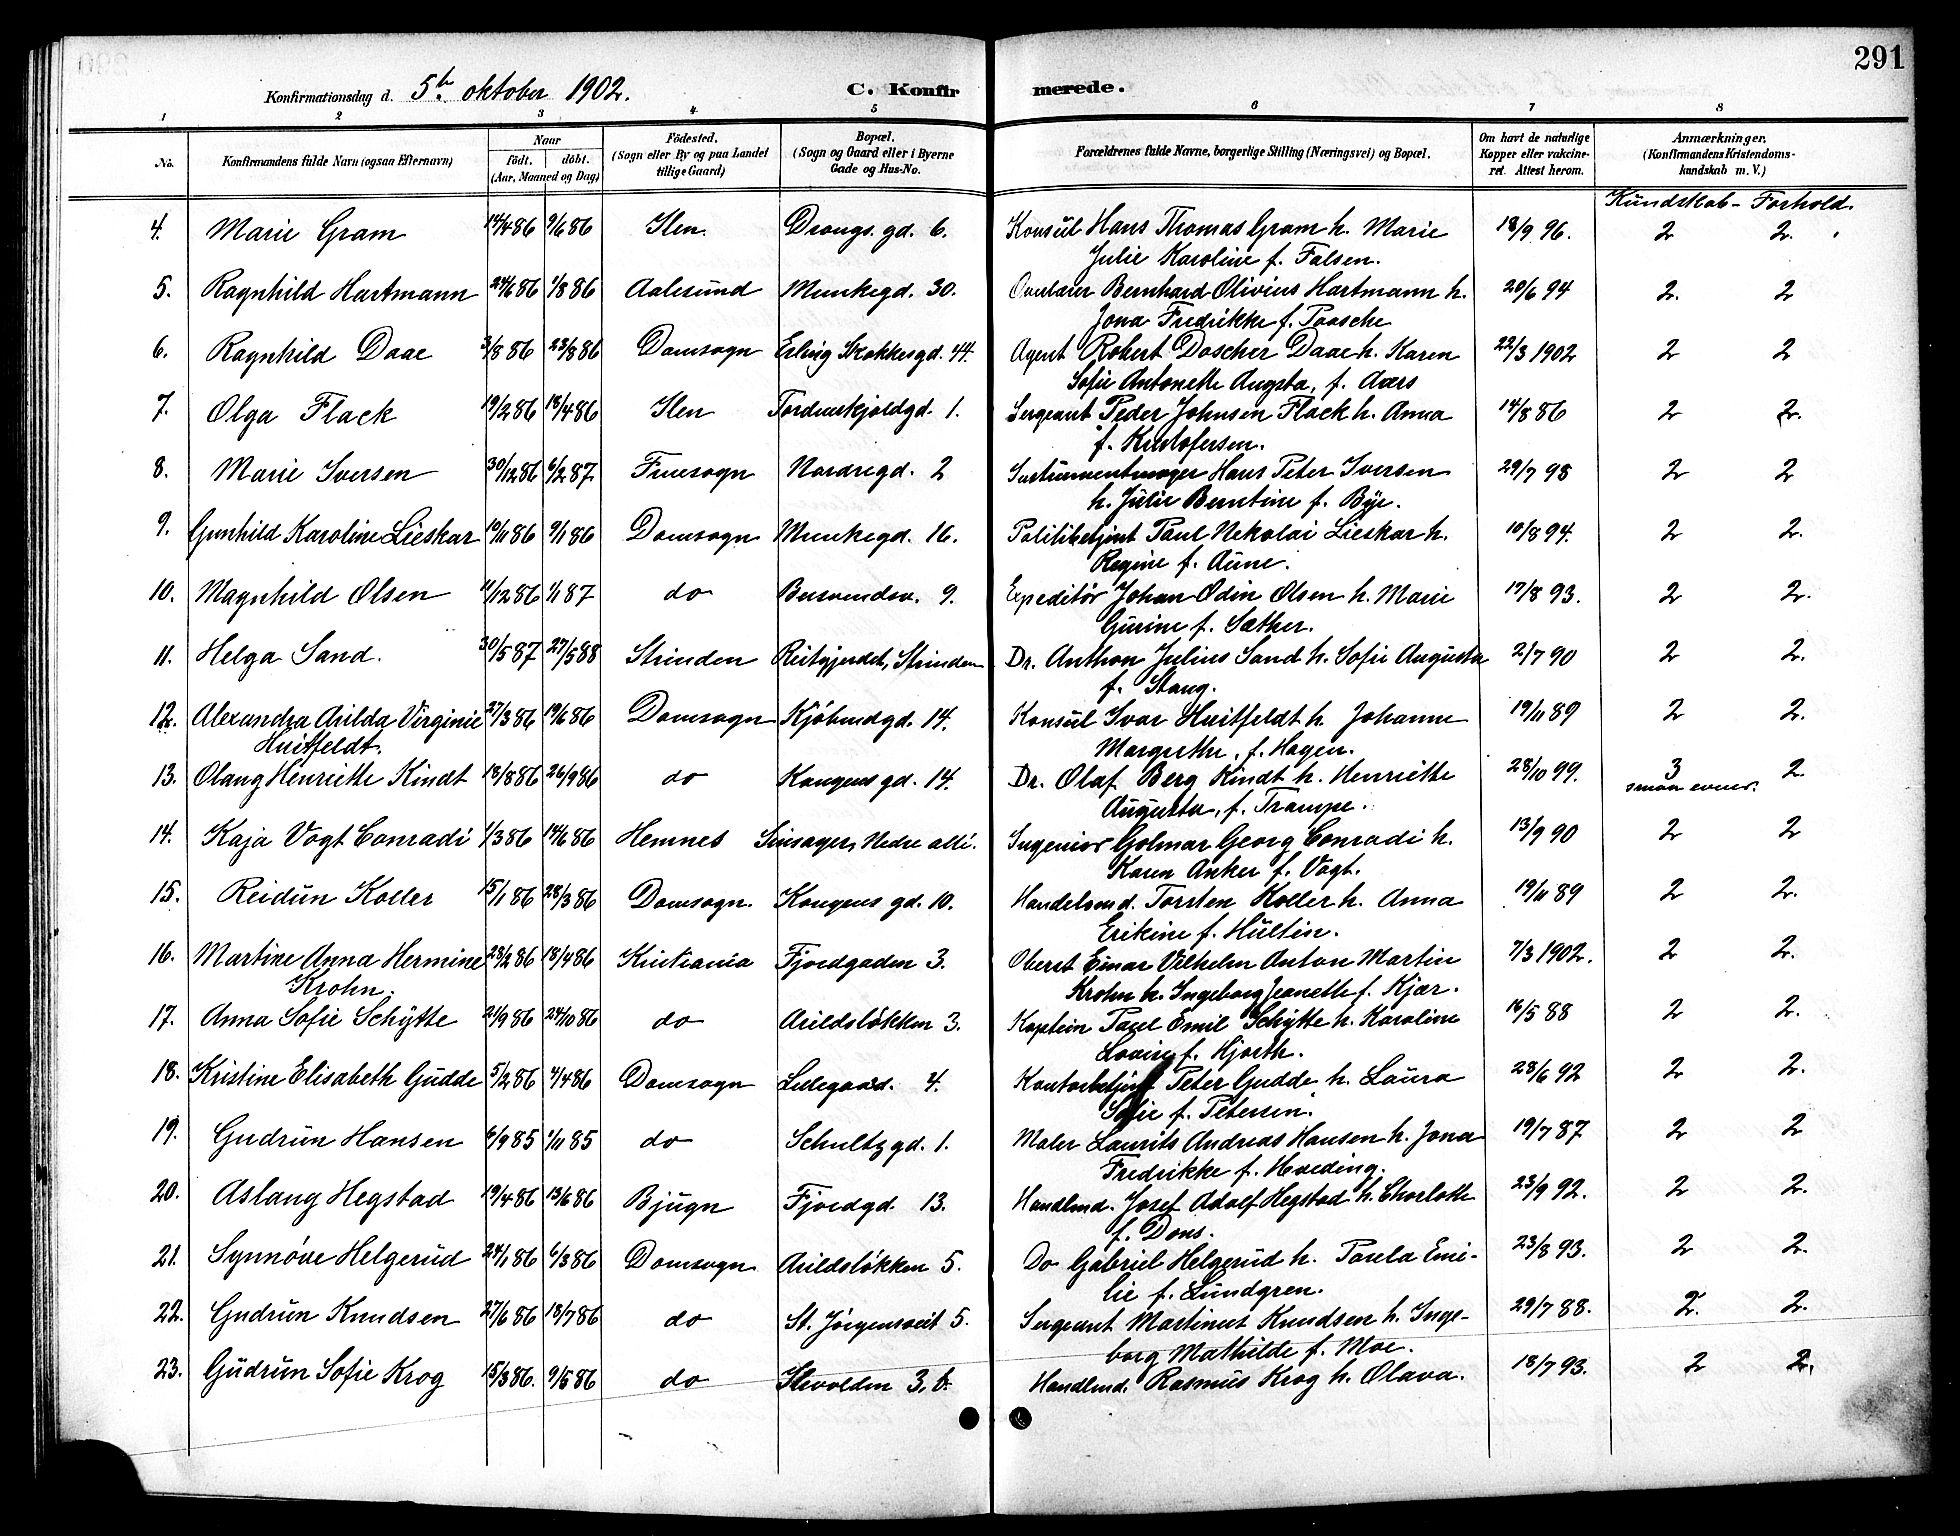 291
Konfirmationsdag d. 5te oktober 1902. C. Konfirmerede.
1 2 3 4 5 6 7 8
No. Konfirmandens fulde Navn (ogsaa Efternavn) Naar födt. döbt. (Aar, Maaned og Dag) Födested. (Sogn eller By og paa Landet tillige Gaard) Bopæl. (Sogn og Gaard eller i Byerne Gade og Hus-No. Forældrenes fulde Navne, borgerlige Stilling (Næringsvei) og Bopæl. Om havt de naturlige Kopper eller vakcineret. Attest herom. Anmærkninger. (Konfirmandens Kristendomskundskab m. V.)
Kundskab - Forhold.
4. Marie Gram 14/4 86 9/6 86 Ilen Drongs. gd. 6. Konsul Hans Thomas Gram h. Marie 18/9 96. 2 2.
Julie Karoline f. Falsen.
5. Ragnhild Hartmann 24/6 86 1/8 86 Aalesund Munkegd. 30. Overlærer Bernhard Olivius Hartmann h. 20/6 94 2. 2
Jona Fredrikke f. Paasche
6. Ragnhild Daae 3/8 86 23/8 86 Domsogn Erling Skakkesgd. 44. Agent Robert Doscher Daae h. Karen 22/3 1902 2 2
Sofie Antonette Augsta, f. Aars
7. Olga Flack 19/2 86 18/4 86 Ilen Tordenskjoldgd. 1. Sergeant Peder Johnsen Flack h. Anna 14/8 86 2 2.
f. Kristofersen.
8. Marie Iversen 30/12 86 6/2 87 Fruesogn Nordregd. 2 Instrumentmager Hans Peter Iversen 29/7 98 2 2
h. Julie Berntine f. Bye.
9. Gunhild Karoline Lieskar 10/11 86 9/1 86 Domsogn Munkegd. 16. Politibetjent Paul Nekolai Lieskar h. 10/8 94. 2 2.
Regine f. Aune.
10. Magnhild Olsen 11/12 86 1/1 87 do Busvendev. 9. Expeditör Johan Odin Olsen h. Marie 17/8 93. 2 2.
Gurine f. Sæther.
11. Helga Sand. 30/5 87 27/5 88 Strinden Reitgjerdet, Strinden Dr. Anthon Julius Sand h. Sofie Augusta 2/7 90 2 2.
f. Stang.
12. Alexandra Arilda Virginie 27/3 86 19/6 86 Domsogn Kjöbmdgd. 14. Konsul Ivar Huitfeldt h. Johanne 19/11 89 2 2.
Huitfeldt. Margrethe, f. Hagen.
13. Olaug Henriette Kindt 18/8 86 26/9 86 do Kongens gd. 14. Dr. Olaf Berg Kindt h. Henriette 28/10 99. 3 2.
smaa evner. Augusta, f. Trampe.
14. Kaja Vogt Conradi 1/3 86 14/6 86 Hemnes Sinsager, Nedre alle. Ingeniør Golmar Georg Conradi h. 13/9 90 2 2
Karen Anker f. Vogt.
15. Reidun Koller 15/1 86 28/3 86 Domsogn. Kongens gd. 10. Handelsmd. Torsten Koller h. Anna 19/11 89 2 2.
Erikine f. Hultin.
16. Martine Anna Hermine 23/2 86 18/4 86 Kristiania Fjordgaden 3. Oberst Einar Vilhelm Anton Martin 7/3 1902. 2 2.
Krohn. Krohn h. Ingeborg Jeanette f. Kjær.
17. Anna Sofie Schytte 21/9 86 24/10 86 do Arildsløkken 3. Kaptein Paul Emil Schytte h. Karoline 16/5 88 2 2.
Lovise f. Hjorth.
18. Kristine Elisabeth Gudde 5/2 86 4/4 86 Domsogn Lillegaard. 4. Kontorbetjent Peter Gudde h. Laura 28/6 92 2 2.
Sofie f. Petersen.
19. Gudrun Hansen 6/9 85 1/11 85 do Schultz gd. 1. Maler Laurits Andreas Hansen h. Jona 19/7 87 2 2
Fredrikke f. Hveding.
20. Aslaug Hegstad 19/4 86 13/6 86 Bjugn Fjordgd. 13. Handlmd. Josef Adolf Hegstad h. Charlotte 23/9 92. 2 2.
f. Dons.
21. Synnöve Helgerud 24/1 86 6/3 86 Domsogn Arildsløkken 5. Do Gabriel Helgerud h. Paula Emi- 23/8 93. 2 2.
lie f. Lundgren.
22. Gudrun Knudsen 27/6 86 18/7 86 do St. Jörgensveit 5. Sergeant Martinus Knudsen h. Inge- 29/7 88. 2. 2.
borg Mathilde f. Moe.
23. Gudrun Sofie Krog 15/3 86. 9/5 86 do Ilevolden 3, b. Handlmd. Rasmus Krog h. Olava. 18/7 93. 2 2.